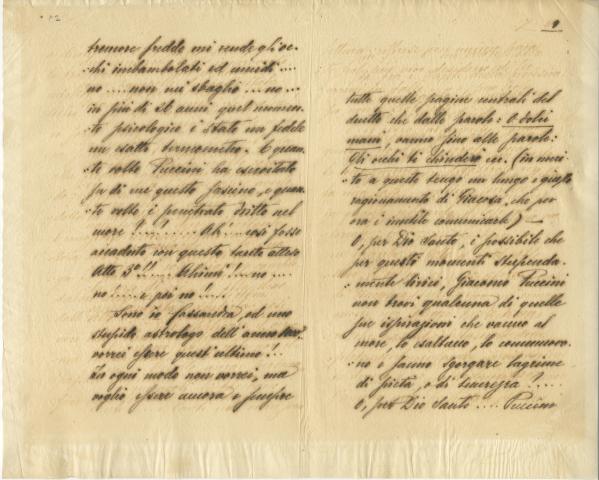 tremore freddo mi rende gli oc-
chi imbambolati ed umidi ....
no .... non mi sbaglio ... no ..
in più di 20 anni quel momen-
to psicologico è stato un fedele
ed esatto termometro. E quan-
te volte Puccini ha esercitato
su di me questo fascino, e quan-
te volte è penetrato dritto nel
cuore !.... !.... Ah! così fosse
accaduto con questo terzo atteso
Atto 3°!! .... Ahimè! .. no ....
no! .... e poi no! ....
Sono io Cassandra, od uno
stupido astrologo dell'anno
vorrei essere quest'ultimo! ..
In ogni modo non vorrei, ma
voglio essere ancora e sempre
9
tutte quelle pagine centrali del
duetto che dalle parole: O dolci
mani, vanno fino alle parole:
Gli occhi ti chiuderò ecc. (in meri-
to a queste tengo un lungo e giusto
ragionamento di Giacosa, che per
ora è inutile comunicarle) —
O, per Dio Santo, è possibile che
per questi momenti stupenda-
mente lirici, Giacomo Puccini
non trovi qualcuna di quelle
sue ispirazioni che vanno al
cuore, lo esaltano, lo commuovo-
no e fanno sgorgare lagrime
di pietà, o di tenerezza? ....
O, per Dio Santo .... Puccini